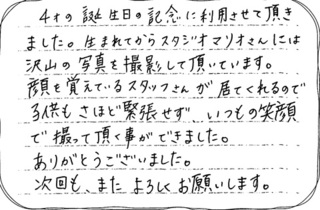 4才の誕生日の記念に利用させて頂き
ました。生まれてからスタジオマリオさんには
沢山の写真を撮影して頂いています。
顔を覚えているスタッフさんが居てくれるので
子供もさほど緊張せず、いつもの笑顔
で撮って頂く事ができました。
ありがとうございました。
次回も、またよろしくお願いします。